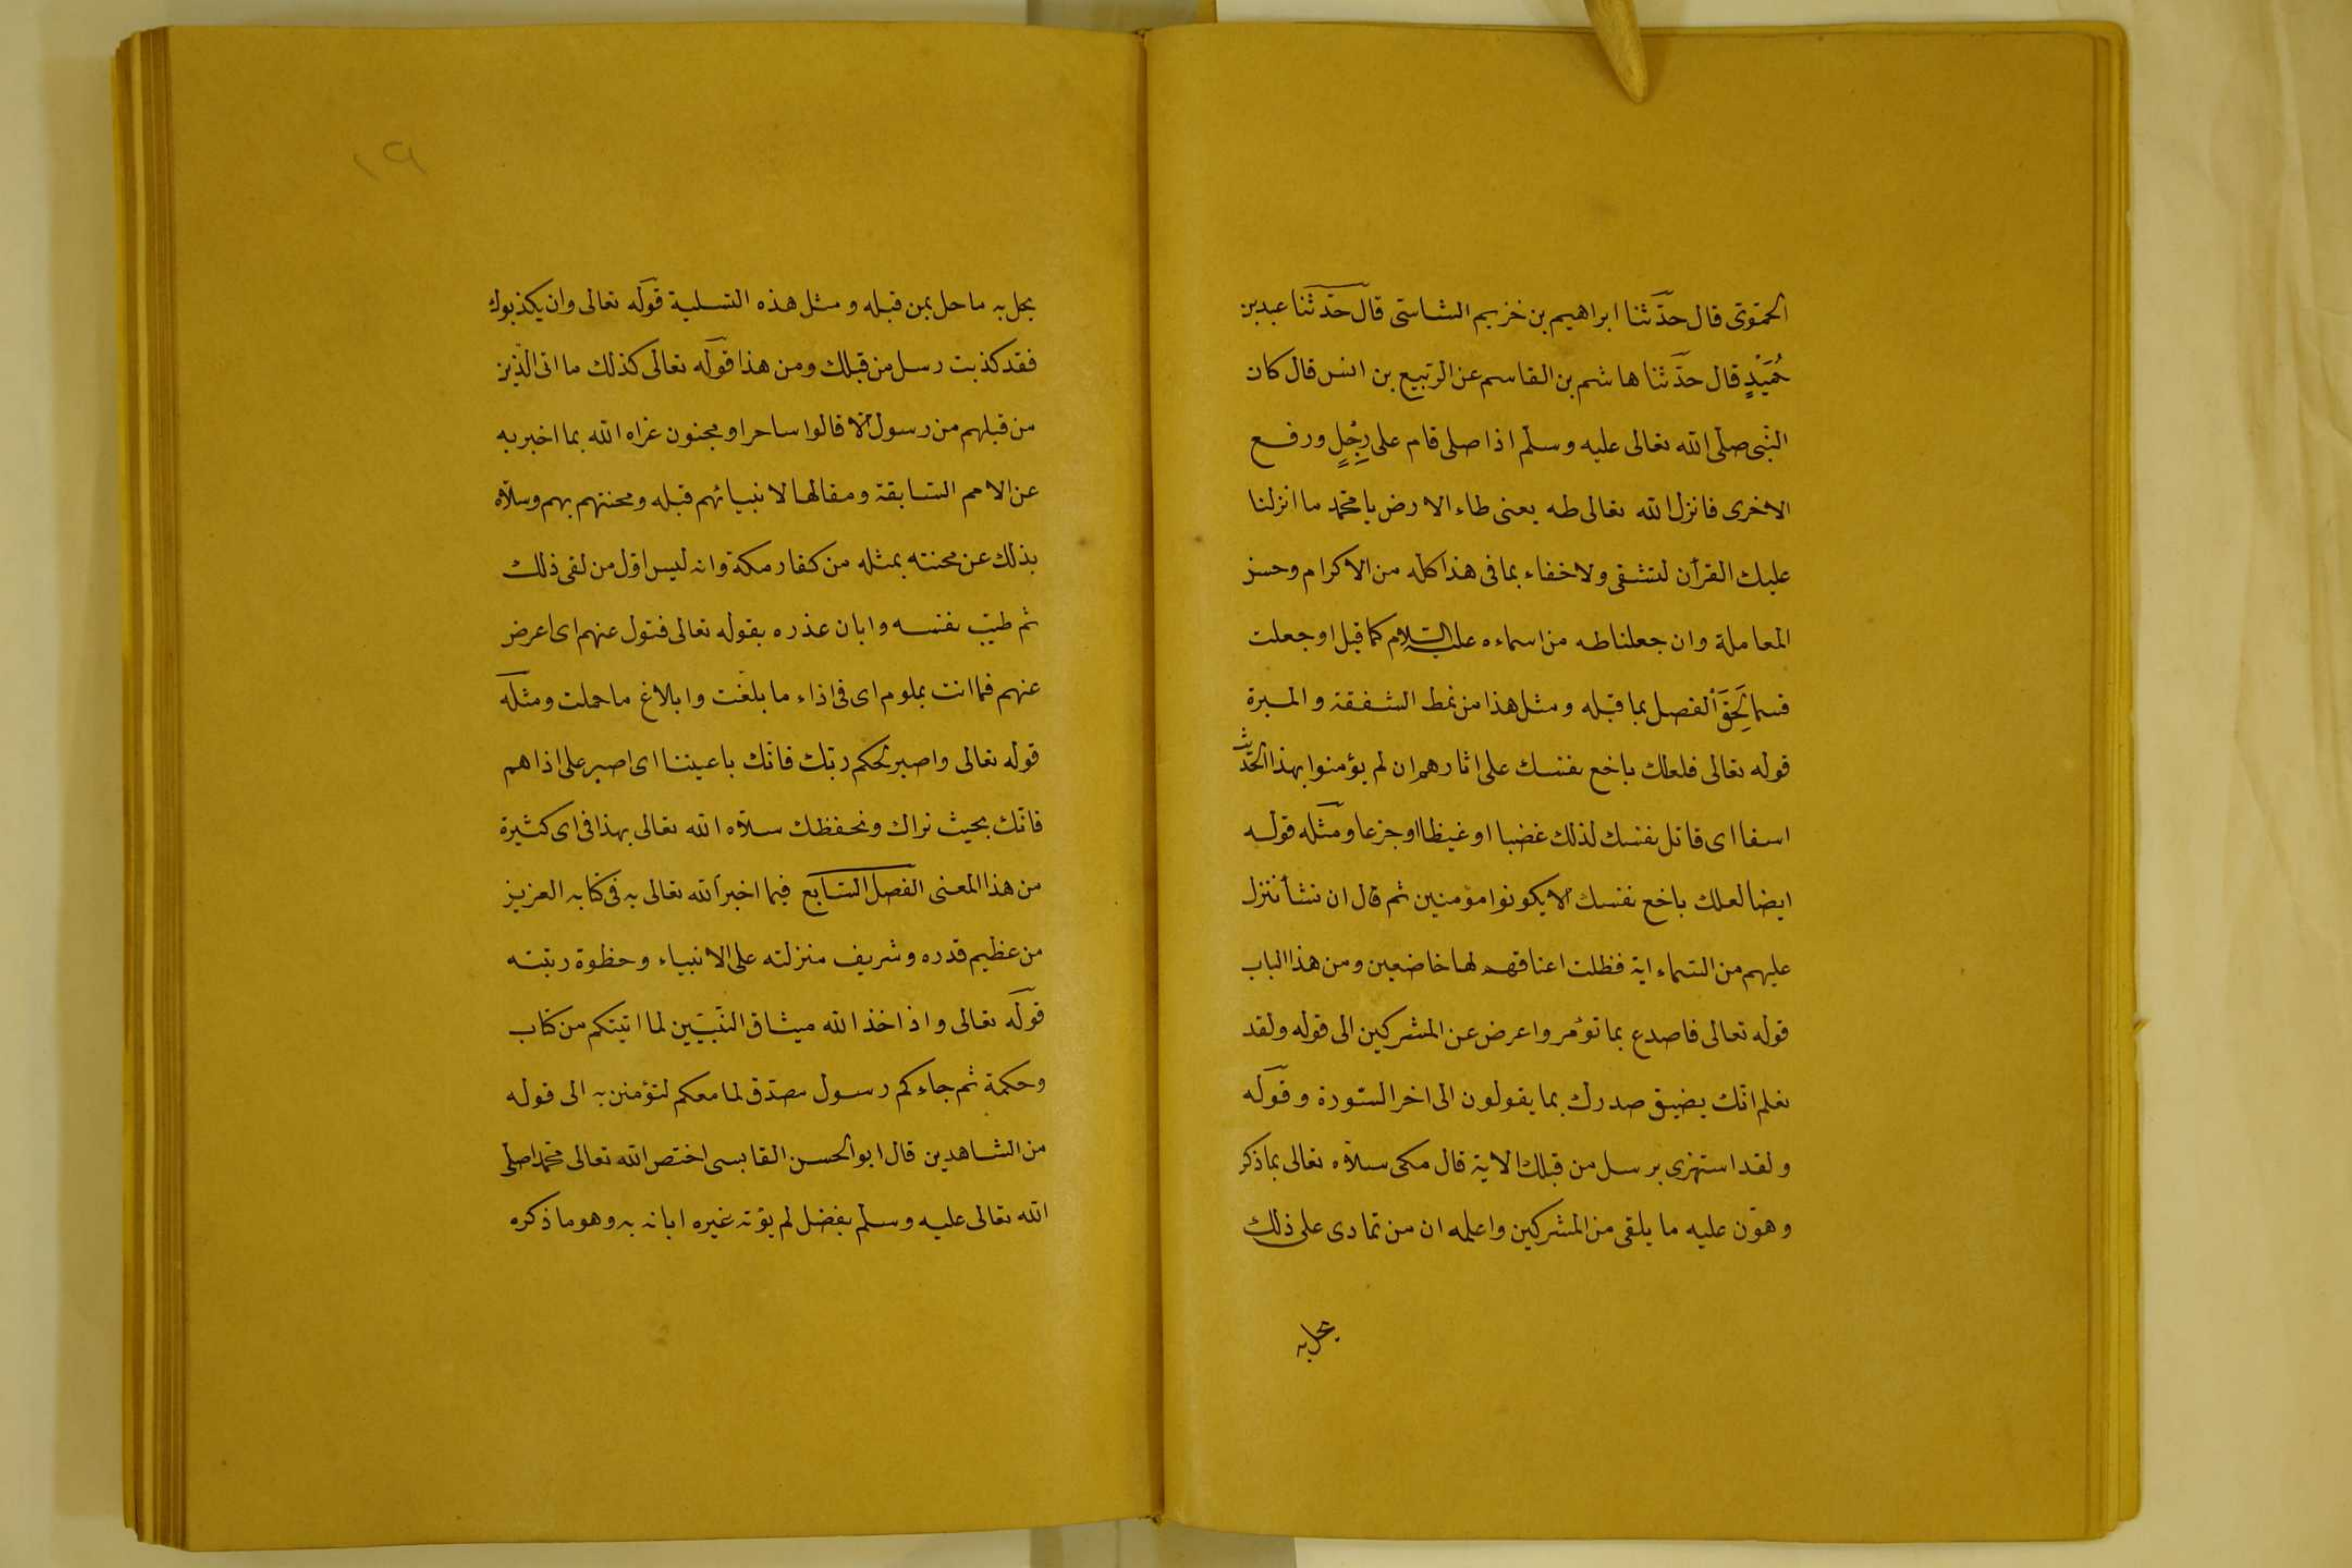 الحموى قال حدّثنا ابراهيم بن خزيم الشاشى قال حدّثنا عبد بن
حُمَيْدٍ قال حدّثنا هاشم بن القاسم عن الربيع بن انس قال كان
النّبى صلّى الله تعالى عليه وسلّم اذا صلى قام على رِجْلٍ ورفع
الاخرى فانزل الله تعالى طه يعنى طاء الارض يا محمّد ما انزلنا
عليك القرأن لتشقى ولا خفاء بما فى هذا كله من الاكرام وحسن
المعاملة وان جعلنا طه من اسماءه عليه السّلام كما قيل او جعلت
قسما لَحِقَ الفصل بما قبله ومثل هذا من نمط الشفقة والمبرة
قوله تعالى فلعلك باخع نفسك على اثارهم ان لم يؤمنوا بهذا الحديث
اسفا اى قاتل نفسك لذلك غضبا او غيظا او جزعا ومثله قوله
ايضا لعلك باخع نفسك الا يكونوا مؤمنين ثم قال ان نشأ ننزل
عليهم من السّماء اية فظلت اعناقهم لها خاضعين ومن هذا الباب
قوله تعالى فاصدع بما تؤمر واعرض عن المشركين الى قوله ولقد
نعلم انّك يضيق صدرك بما يقولون الى اخر السّورة وقوله
ولقد استهزى برسل من قبلك الاية قال مكى سلّاه تعالى بما ذكر
وهوّن عليه ما يلقى من المشركين واعلمه ان من تمادى على ذلك
يحل به
١٩
يحل به ما حل بمن قبله ومثل هذه التسلية قوله تعالى وان يكذبوك
فقد كذبت رسل من قبلك ومن هذا قوله تعالى كذلك ما اتى الّذين
من قبلهم من رسول الا قالوا ساحر او مجنون عزاه الله بما اخبر به
عن الامم السّابقة ومقالها لانبيائهم قبله ومحنتهم بهم وسلّاه
بذلك عن محنته بمثله من كفار مكة وانه ليس اوّل من لقى ذلك
ثم طيّب نفسه وابان عذره بقوله تعالى فتول عنهم اى اعرض
عنهم فما انت بملوم اى فى اداء ما بلغت وابلاغ ما حملت ومثله
قوله تعالى واصبر لحكم ربّك فانّك باعيننا اى اصبر على اذاهم
فانّك بحيث نراك ونحفظك سلّاه الله تعالى بهذا فى اى كثيرة
من هذا المعنى الفصل السّابع فيما اخبر الله تعالى به فى كتابه العزيز
من عظيم قدره وشريف منزلته على الانبياء وحظوة رتبته
قوله تعالى واذ اخذ الله ميثاق النّبيّين لما اتيتكم من كتاب
وحكمة ثم جاءكم رسول مصدّق لما معكم لتؤمنن به الى قوله
من الشاهدين قال ابو الحسن القابسى اختص الله تعالى محمدا صلى
الله تعالى عليه وسلّم بفضل لم يؤته غيره ابانه به وهو ما ذكره